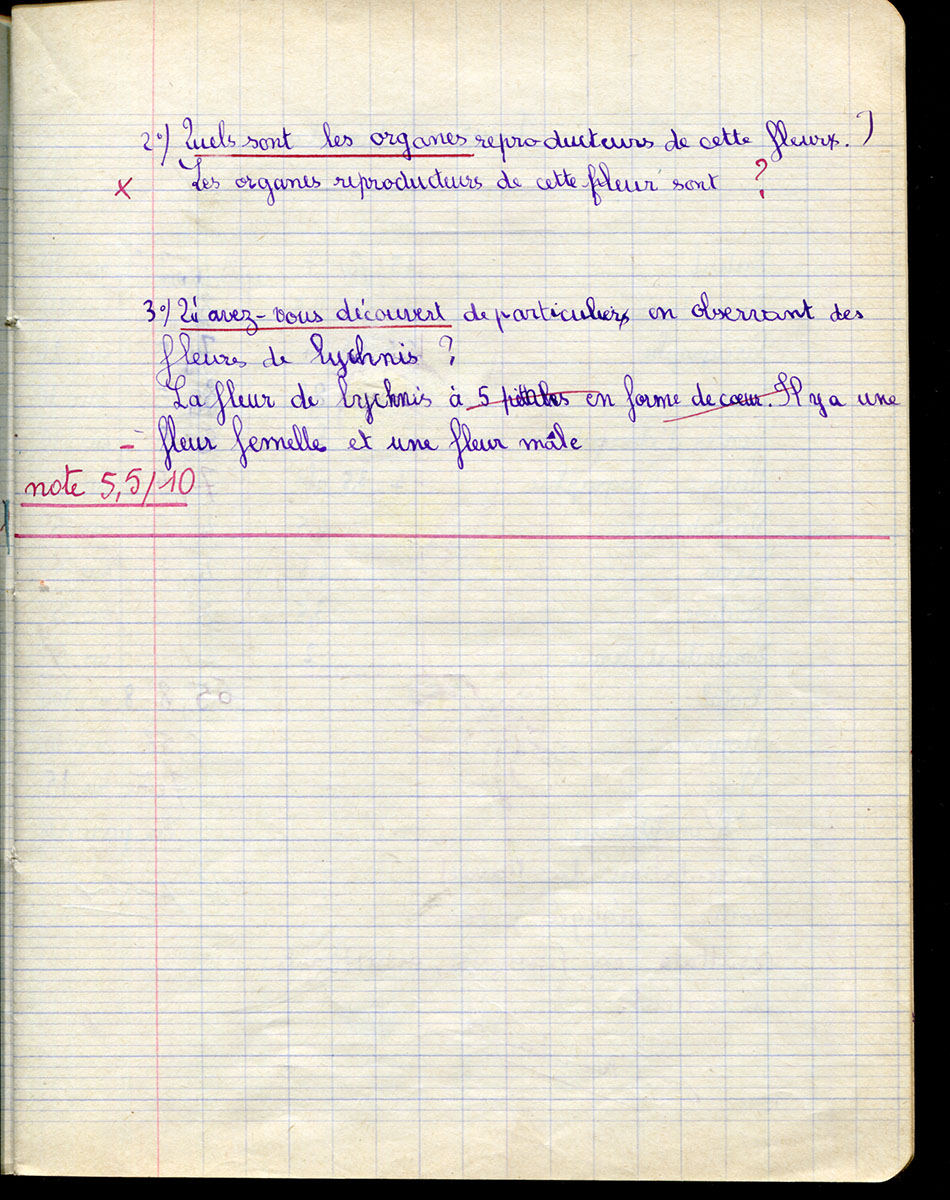 2°) Quels sont les organes reproducteurs de cette fleurs. ?
x Les organes reproducteurs de cette fleur sont ?
3°) Qu'avez-vous découvert de particuliers en observant des
fleures de lychnis ?
La fleur de lychnis à 5 pétales en forme de cœur. Il y a une
- fleur femelle et une fleur mâle
note 5,5/10